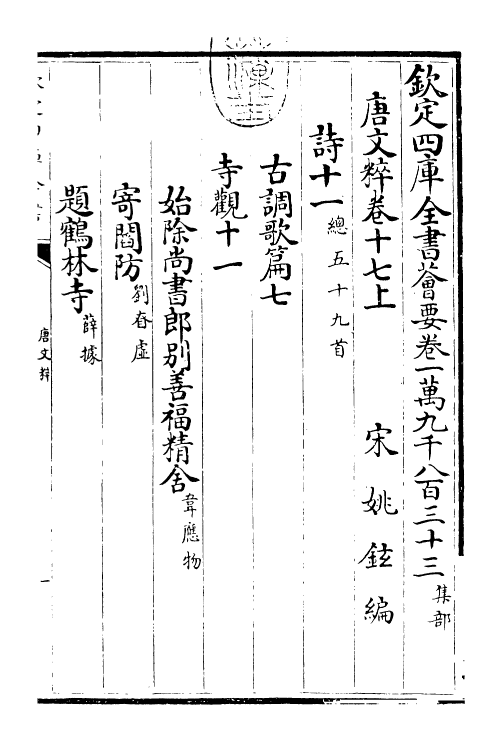 欽定四庫全書薈要卷一萬九千八百三十三 集部
唐文粹卷十七上 宋 姚鉉 編
詩十一 總五十九首
古調歌篇七
寺觀十一
始除尚書郎别善福精舍 韋應物
寄閻防 劉眘虛
題鶴林寺 薛據
唐文粹
一